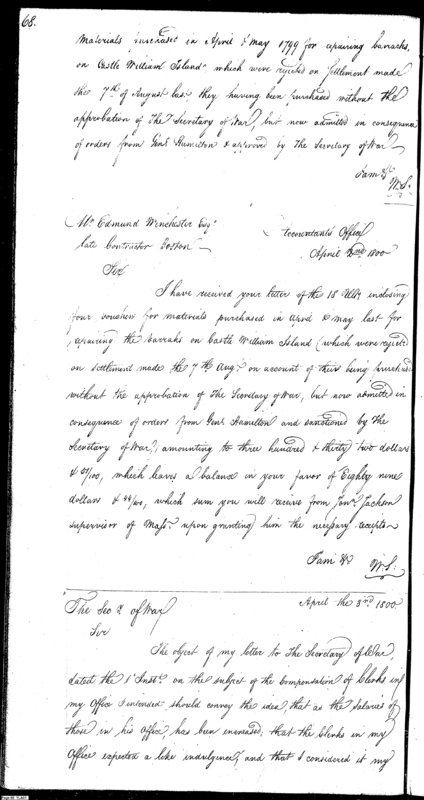 68.
materials purchased in April & May 1799 for repairing barracks
on Castle William Island, which were rejected on Settlement made
the 7th of August last they having been purchased without the
approbation of The Secretary of War, but now admitted in consequence
of orders from Genl Hamilton & approved by the Secretary of War
I am &c
W.S.
Mr Edmund Winchester Esqr
late Contractor Boston
Accountants Office
April 2nd 1800
Sir
I have received your letter of the 18 Ulto. inclosing
four vouchers for materials purchased in April & May last for
repairing the barraks on Castle William Island (which were rejected
on settlement made the 7th Augt. on account of their being purchased
without the approbation of The Secretary of War, but now admitted in
consequence of orders from Genl Hamilton and sanctioned by The
Secretary of War) amounting to three hundred & thirty two dollars
& /100, which leaves a balance in your favor of Eighty nine
dollars & 44/100, which sum you will receive from Jonn. Jackson
supervisor of Masss. upon granting him the necessary receipts
I am &c
W.S.
April the 3rd 1800
The Secy. of War
Sir
The object of my letter to The Secretary of War
dated the 1 Instt. on the subject of the compensation of Clerks in
my Office I intended should convey the idea, that as the Salaries of
those in his Office, has been encreased, that the Clerks in my
Office expected a like indulgence, and that I considered it my